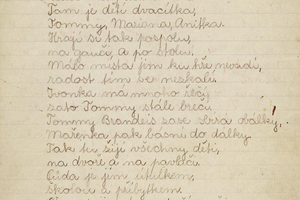 Tam je dětí dvacítka,
Tommy, Mariana, Anitka.
Hrají si tak pospolu,
na gauči, a po stolu.
Málo místa jim ku hře nevadí,
radost jim se neskalí.
Ivonka má mnoho
zato Tommy stále brečí.
Tommy Brandeis zase sbírá obálky,
Mařenka pak básní do dálky.
Tak tu žijí všechny děti,
na dvoře a na pavlači.
Půda je jim útulkem,
školou a příbytkem.